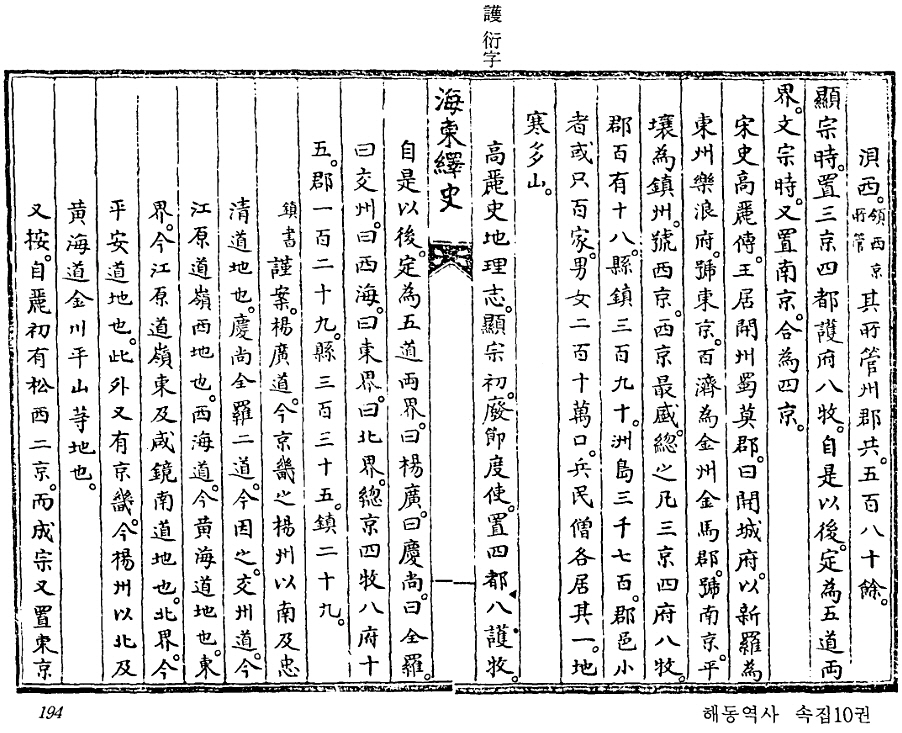 護衍字
浿西。領西京所管其所管州郡共五百八十餘。
顯宗時。置三京四都護府八牧。自是以後。定為五道兩
界。文宗時。又置南京。合為四京。
宋史高麗傳。王居開州蜀莫郡。曰開城府。以新羅為
東州樂浪府。號東京。百濟為金州金馬郡。號南京。平
壤為鎮州。號西京。西京最盛。總之凡三京四府八牧。
郡百有十八。縣鎮三百九十。洲島三千七百。郡邑小
者或只百家。男女二百十萬口。兵民僧各居其一。地
寒多山。
高麗史地理志。顯宗初。廢節度使。置四都八護牧。
海東繹史
自是以後。定為五道兩界。曰楊廣。曰慶尚。曰全羅。
曰交州。曰西海。曰東界。曰北界。總京四牧八府十
五。郡一百二十九。縣三百三十五。鎮二十九。
鎮書謹案。楊廣道。今京畿之楊州以南及忠
清道地也。慶尚全羅二道。今因之。交州道。今
江原道嶺西地也。西海道。今黃海道地也。東
界。今江原道嶺東及咸鏡南道地也。北界。今
平安道地也。此外又有京畿。今楊州以北及
黃海道金川平山等地也。
又按。自麗初有松西二京。而成宗又置東京
194
해동역사 속집10권